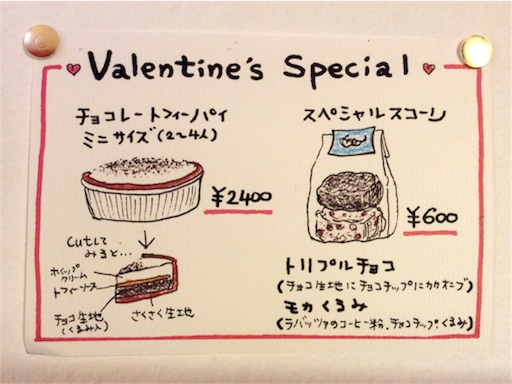 Valentine's Special
チョコレートトフィーパイ
ミニサイズ(2〜4人)
¥2400
Cutして
みると…
ホイップ
クリーム
トフィーソース
チョコ生地
(くるみ入)
さくさく生地
スペシャルスコーン
¥600
トリプルチョコ
(チョコ生地にチョコチップにカカオニブ)
モカくるみ
(ラバッツァのコーヒー粉、チョコチップ、くるみ)